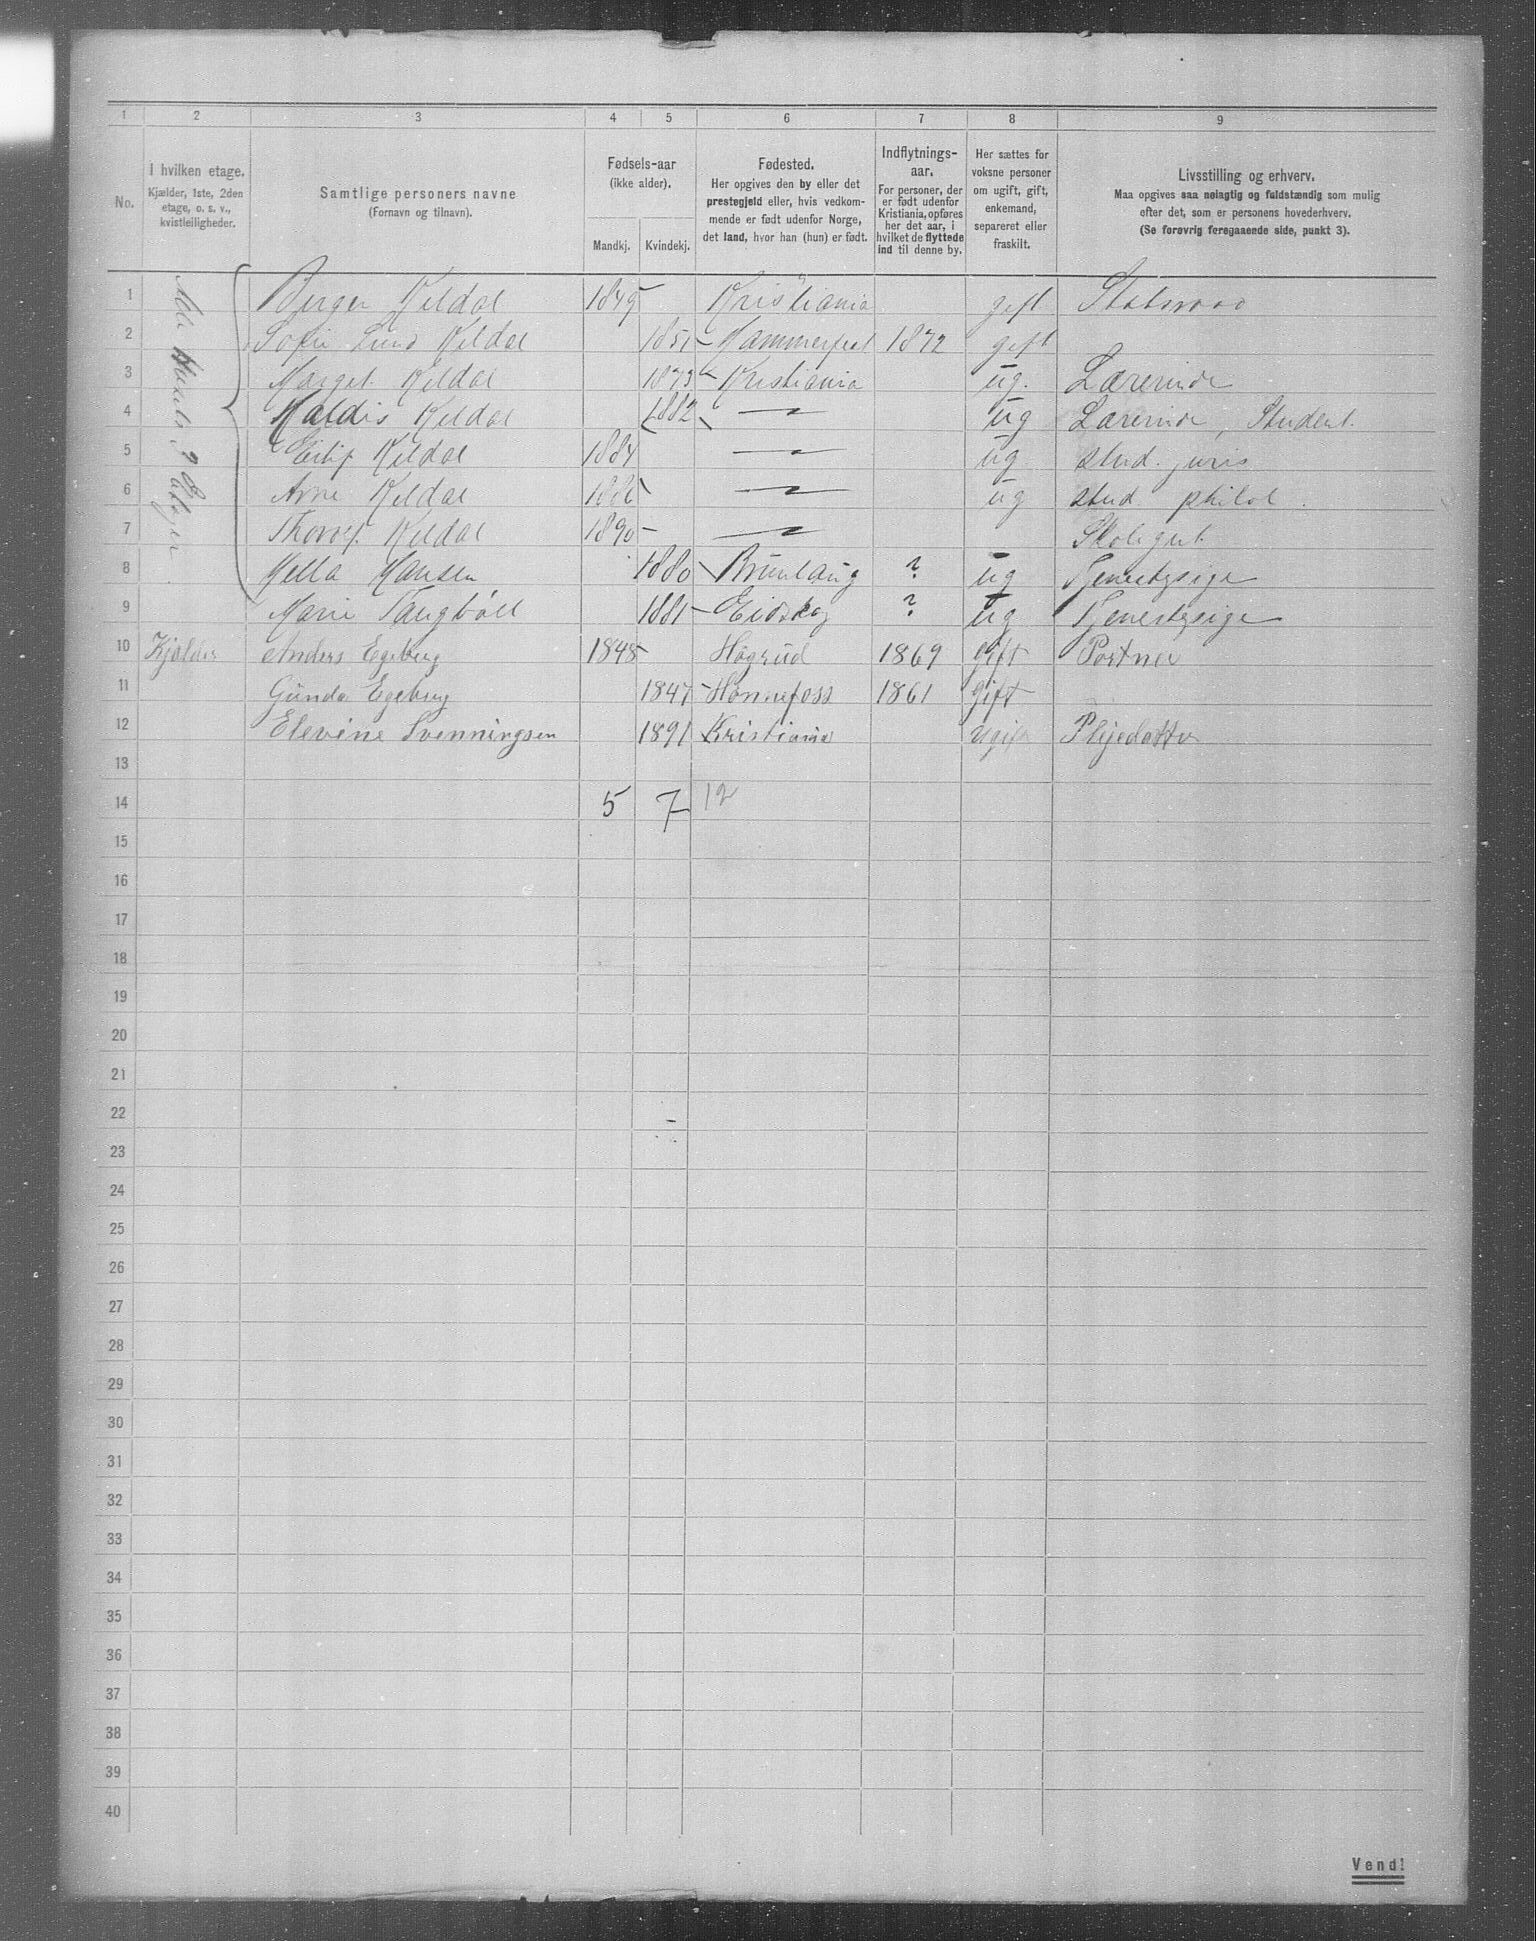 1 2 3 4 5 6 7 8 9
No.
I hvilken etage.
Kjælder, 1ste, 2den
etage, o. s. v.,
kvistleiligheder.
Samtlige personers navne
(Fornavn og tilnavn).
Fødsels-aar
(ikke alder).
Mandkj. Kvindekj.
Fødested.
Her opgives den by eller det
prestegjeld eller, hvis vedkom-
mende er født udenfor Norge,
det land, hvor han (hun) er født.
Indflytnings-
aar.
For personer, der
er født udenfor
Kristiania, opføres
her det aar, i
hvilket de flyttede
ind til denne by.
Her sættes for
voksne personer
om ugift, gift,
enkemand,
separeret eller
fraskilt.
Livsstilling og erhverv.
Maa opgives saa nøiagtig og fuldstændig som mulig
efter det, som er personens hovederhverv.
(Se forøvrig foregaaende side, punkt 3).
1 Birger Kildal 1849 Kristiania gift Statsraad
2 Sofie Lund Kildal 1851 Hammerfest 1872 gift
3 Margit Kildal 1873 Kristiania ug. Lærerinde
4 Kildal 1882 — ug Lærerinde, Student
5 Eilif Kildal 1884 — ug stud. juris
6 Arne Kildal 1886 — ug stud. philol.
7 Kildal 1890 — Skolegut
8 Hella Hansen 1880 Brunlaug ? ug Tjenestepige
9 Marie 1881 Eidskog ? ug Tjenestepige
10 Kjælder Anders Egeberg 1848 Hagrud 1869 Gift Portner
11 Gunda Egeberg 1847 Hønnefoss 1861 Gift
12 Elevine Svenningsen 1891 Kristiania Ugift Plejedatter
13
14 5 7 12
15
16
17
18
19
20
21
22
23
24
25
26
27
28
29
30
31
32
33
34
35
36
37
38
39
40
Vend!